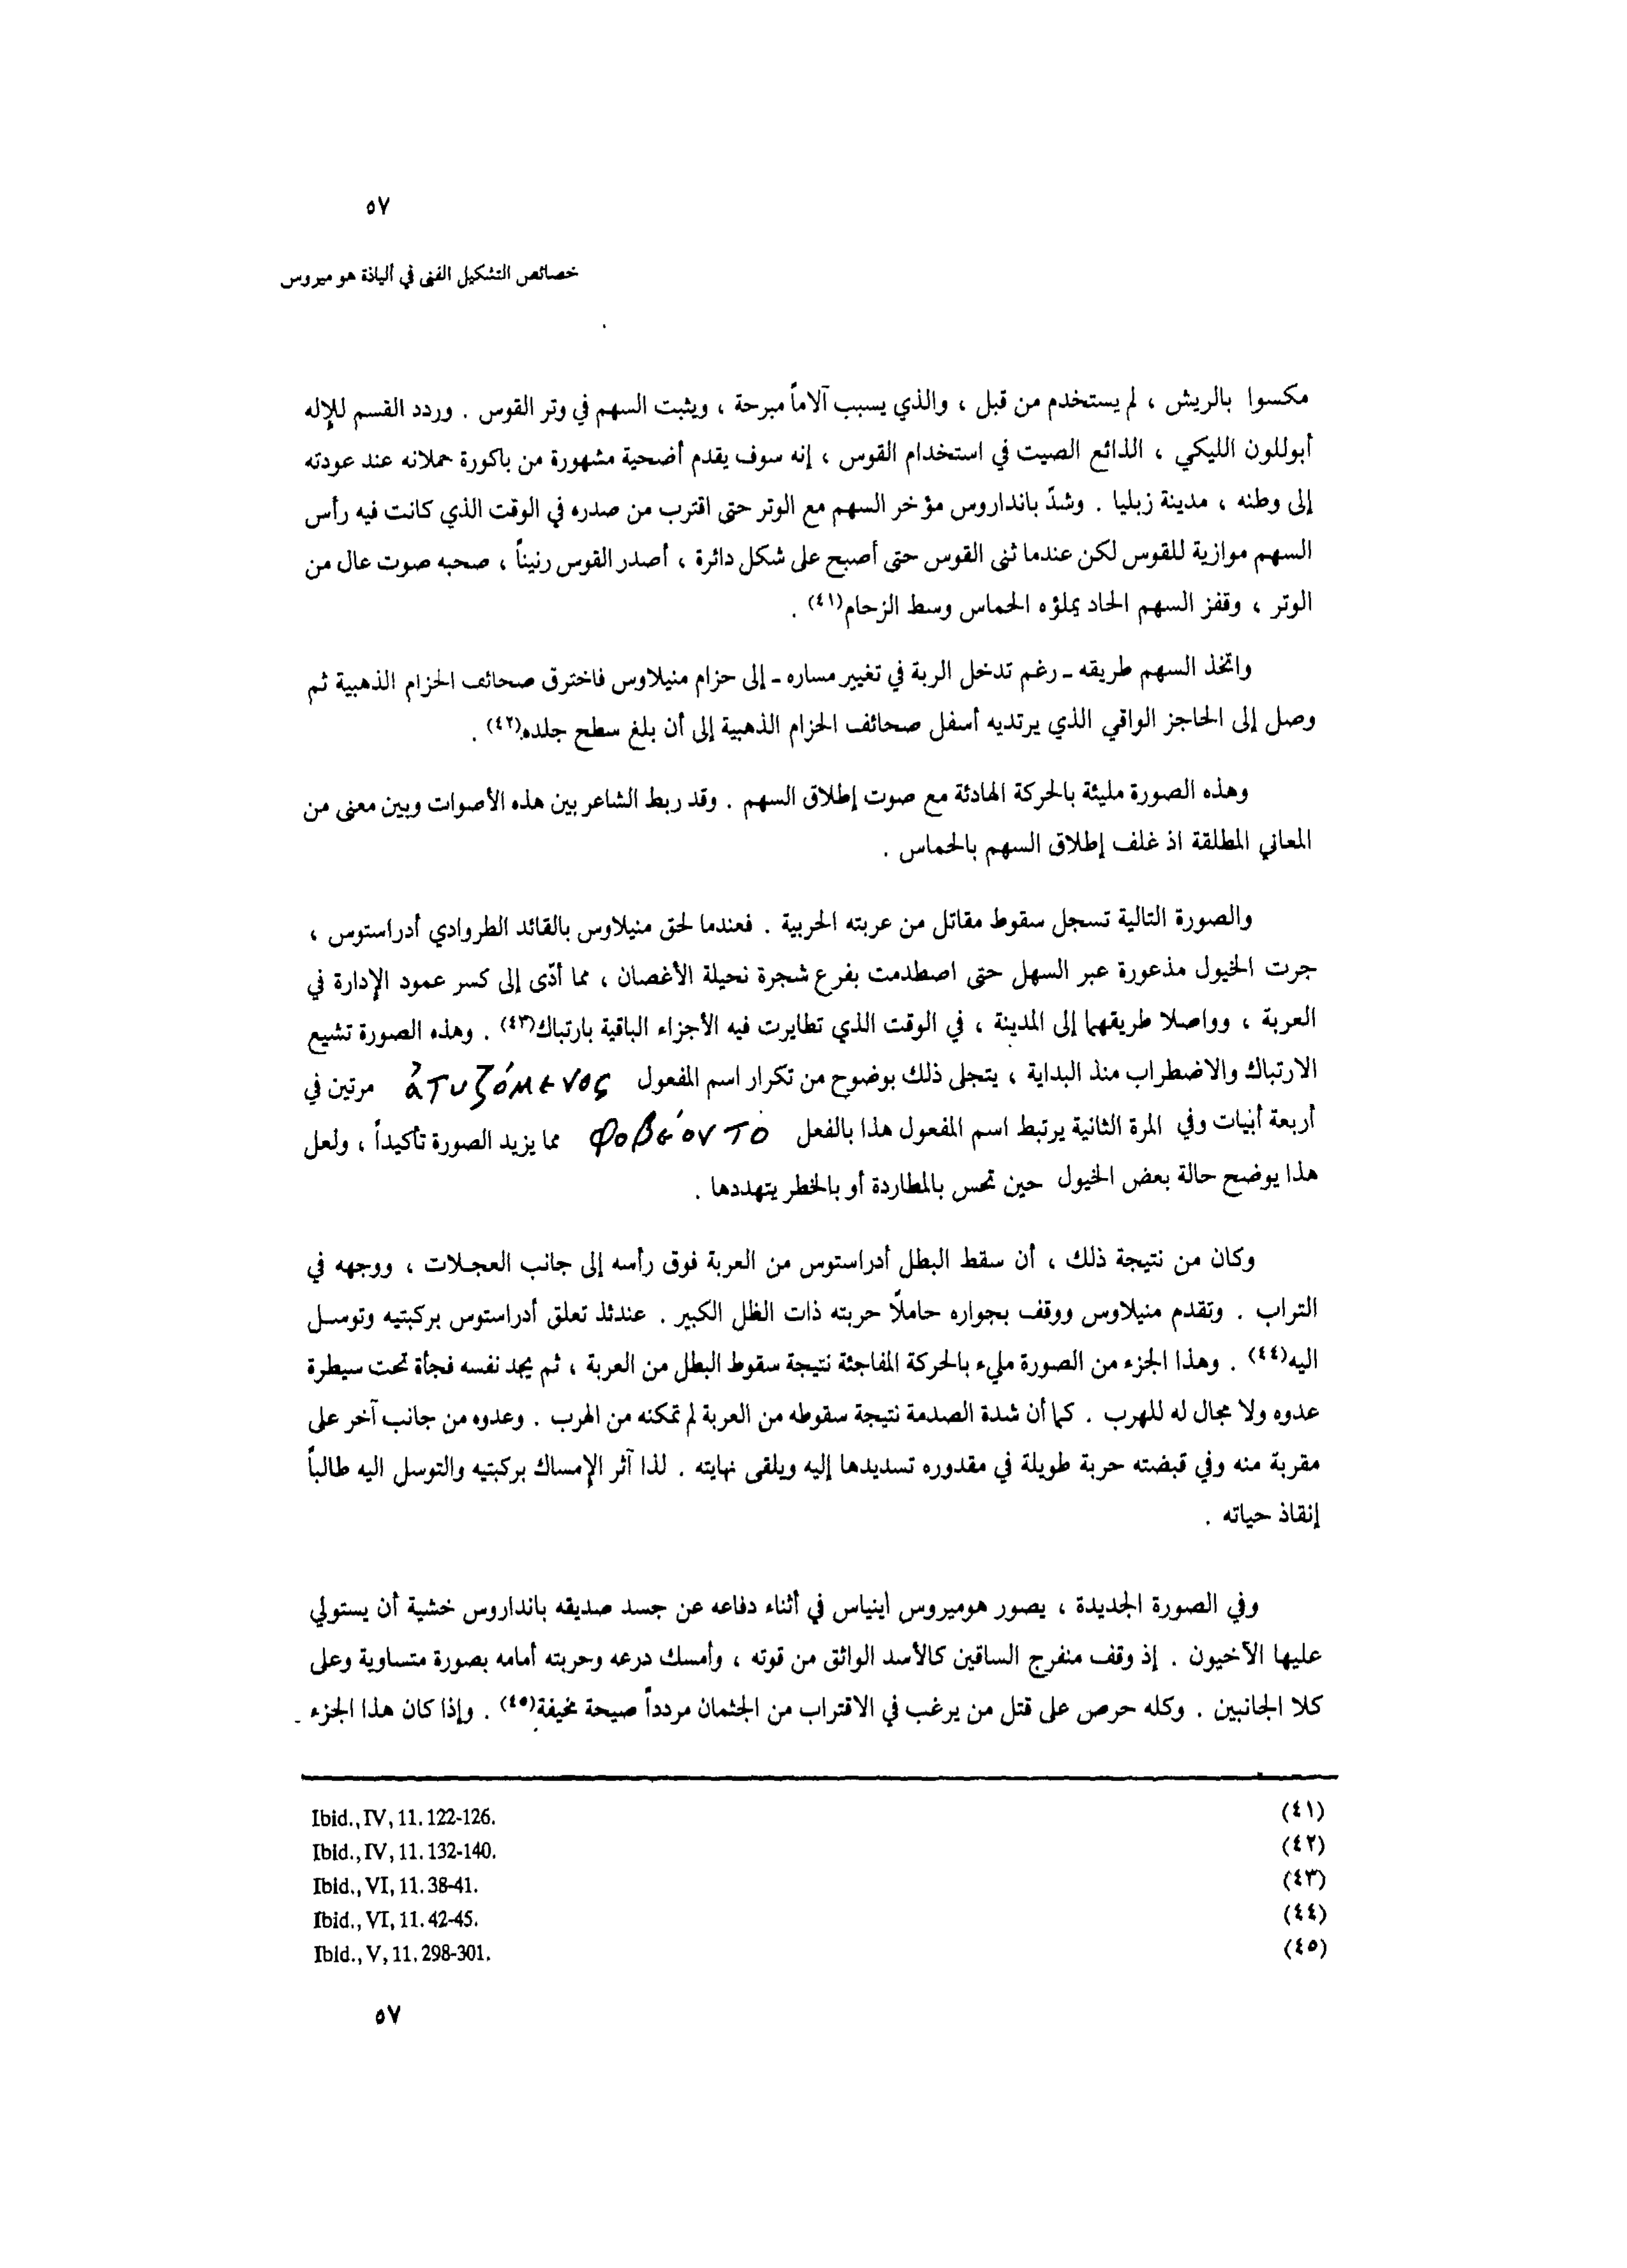 ٥٧
خصائص التشكيل الفنى في ألياذة هو ميروس
مكسوا بالريش ، لم يستخدم من قبل ، والذي يسبب آلاماً مبرحة ، ويثبت السهم في وتر القوس . وردد القسم للإله
أبوللون الليكي ، الذائع الصيت في استخدام القوس ، إنه سوف يقدم أضحية مشهورة من باكورة حملانه عند عودته
إلى وطنه ، مدينة زبليا . وشدّ بانداروس مؤخر السهم مع الوتر حتى اقترب من صدره في الوقت الذي كانت فيه رأس
السهم موازية للقوس لكن عندما ثنى القوس حتى أصبح على شكل دائرة ، أصدر القوس رنيناً ، صحبه صوت عال من
الوتر ، وقفز السهم الحاد يملؤه الحماس وسط الزحام(٤١) .
واتخذ السهم طريقه ـ رغم تدخل الربة في تغيير مساره ـ إلى حزام منيلاوس فاخترق صحائف الحزام الذهبية ثم
وصل إلى الحاجز الواقي الذي يرتديه أسفل صحائف الحزام الذهبية إلى أن بلغ سطح جلده(٤٢) .
وهذه الصورة مليئة بالحركة الهادئة مع صوت إطلاق السهم . وقد ربط الشاعر بين هذه الأصوات وبين معنى من
المعاني المطلقة اذ غلف إطلاق السهم بالحماس .
والصورة التالية تسجل سقوط مقاتل من عربته الحربية . فعندما لحق منيلاوس بالقائد الطروادي أدراستوس ،
جرت الخيول مذعورة عبر السهل حتى اصطدمت بفرع شجرة نحيلة الأغصان ، مما أدّى إلى كسر عمود الإدارة في
العربة ، وواصلا طريقهما إلى المدينة ، في الوقت الذي تطايرت فيه الأجزاء الباقية بارتباك(٤٣) . وهذه الصورة تشيع
الارتباك والاضطراب منذ البداية ، يتجلى ذلك بوضوح من تكرار اسم المفعول ἀτυζόμενος مرتين في
أربعة أبيات وفي المرة الثانية يرتبط اسم المفعول هذا بالفعل φοβέοντο مما يزيد الصورة تأكيداً ، ولعل
هذا يوضح حالة بعض الخيول حين تحس بالمطاردة أو بالخطر يتهددها .
وكان من نتيجة ذلك ، أن سقط البطل أدراستوس من العربة فوق رأسه إلى جانب العجلات ، ووجهه في
التراب . وتقدم منيلاوس ووقف بجواره حاملاً حربته ذات الظل الكبير . عندئذ تعلق أدراستوس بركبتيه وتوسل
اليه(٤٤) . وهذا الجزء من الصورة مليء بالحركة المفاجئة نتيجة سقوط البطل من العربة ، ثم يجد نفسه فجأة تحت سيطرة
عدوه ولا مجال له للهرب . كما أن شدة الصدمة نتيجة سقوطه من العربة لم تمكنه من الهرب . وعدوه من جانب آخر على
مقربة منه وفي قبضته حربة طويلة في مقدوره تسديدها إليه ويلقى نهايته . لذا آثر الإمساك بركبتيه والتوسل اليه طالباً
إنقاذ حياته .
وفي الصورة الجديدة ، يصور هوميروس اينياس في أثناء دفاعه عن جسد صديقه بانداروس خشية أن يستولي
عليها الآخيون . إذ وقف منفرج الساقين كالأسد الواثق من قوته ، وأمسك درعه وحربته أمامه بصورة متساوية وعلى
كلا الجانبين . وكله حرص على قتل من يرغب في الاقتراب من الجثمان مردداً صيحة مخيفة(٤٥) . وإذا كان هذا الجزء
(٤١) Ibid., IV, 11. 122-126.
(٤٢) Ibid., IV, 11. 132-140.
(٤٣) Ibid., VI, 11. 38-41.
(٤٤) Ibid., VI, 11. 42-45.
(٤٥) Ibid., V, 11. 298-301.
٥٧